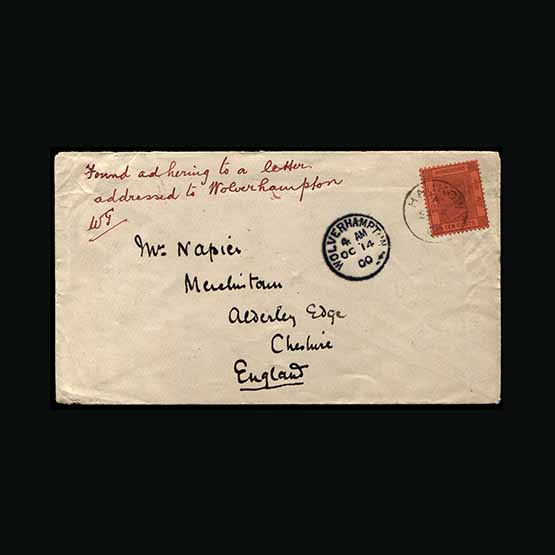 Found adhering to a letter
addressed to Wolverhampton
WT
Mrs Napier
Merchistoun
Alderley Edge
Cheshire
England
WOLVERHAMPTON
4 AM
OC 14
00
TEN